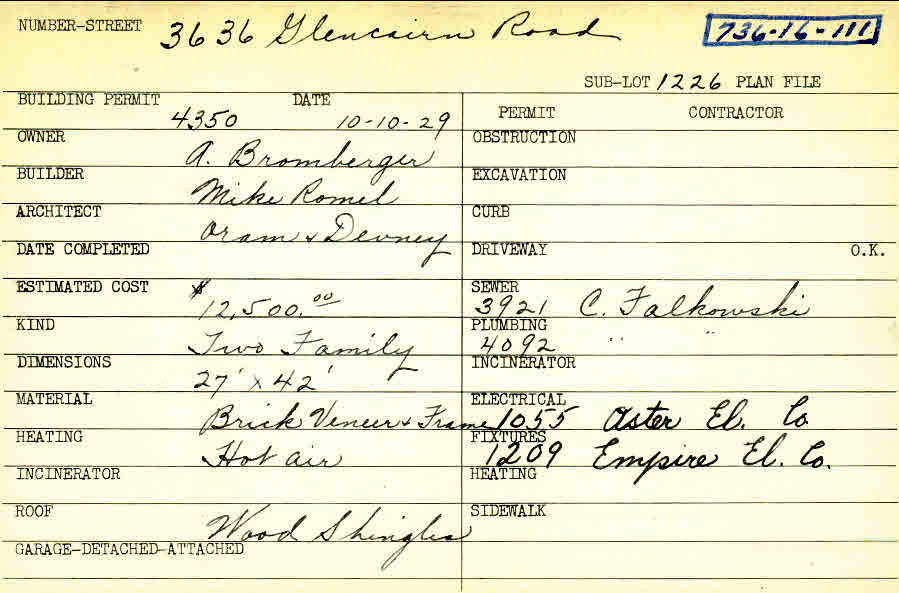 NUMBER-STREET 3636 Glencairn Road 736-16-111
SUB-LOT 1226 PLAN FILE
BUILDING PERMIT 4350 DATE 10-10-29
PERMIT CONTRACTOR
OWNER A. Bromberger
OBSTRUCTION
BUILDER Mike Romel
EXCAVATION
ARCHITECT Oram & Devney
CURB
DATE COMPLETED
DRIVEWAY O.K.
ESTIMATED COST $12,500.00
SEWER 3921 C. Falkowski
KIND Two Family
PLUMBING 4092 " "
DIMENSIONS 27' x 42'
INCINERATOR
MATERIAL Brick Veneer & Frame
ELECTRICAL 1055 Aster El. Co
HEATING Hot air
FIXTURES 1209 Empire El. Co.
INCINERATOR
HEATING
ROOF Wood Shingles
SIDEWALK
GARAGE-DETACHED-ATTACHED